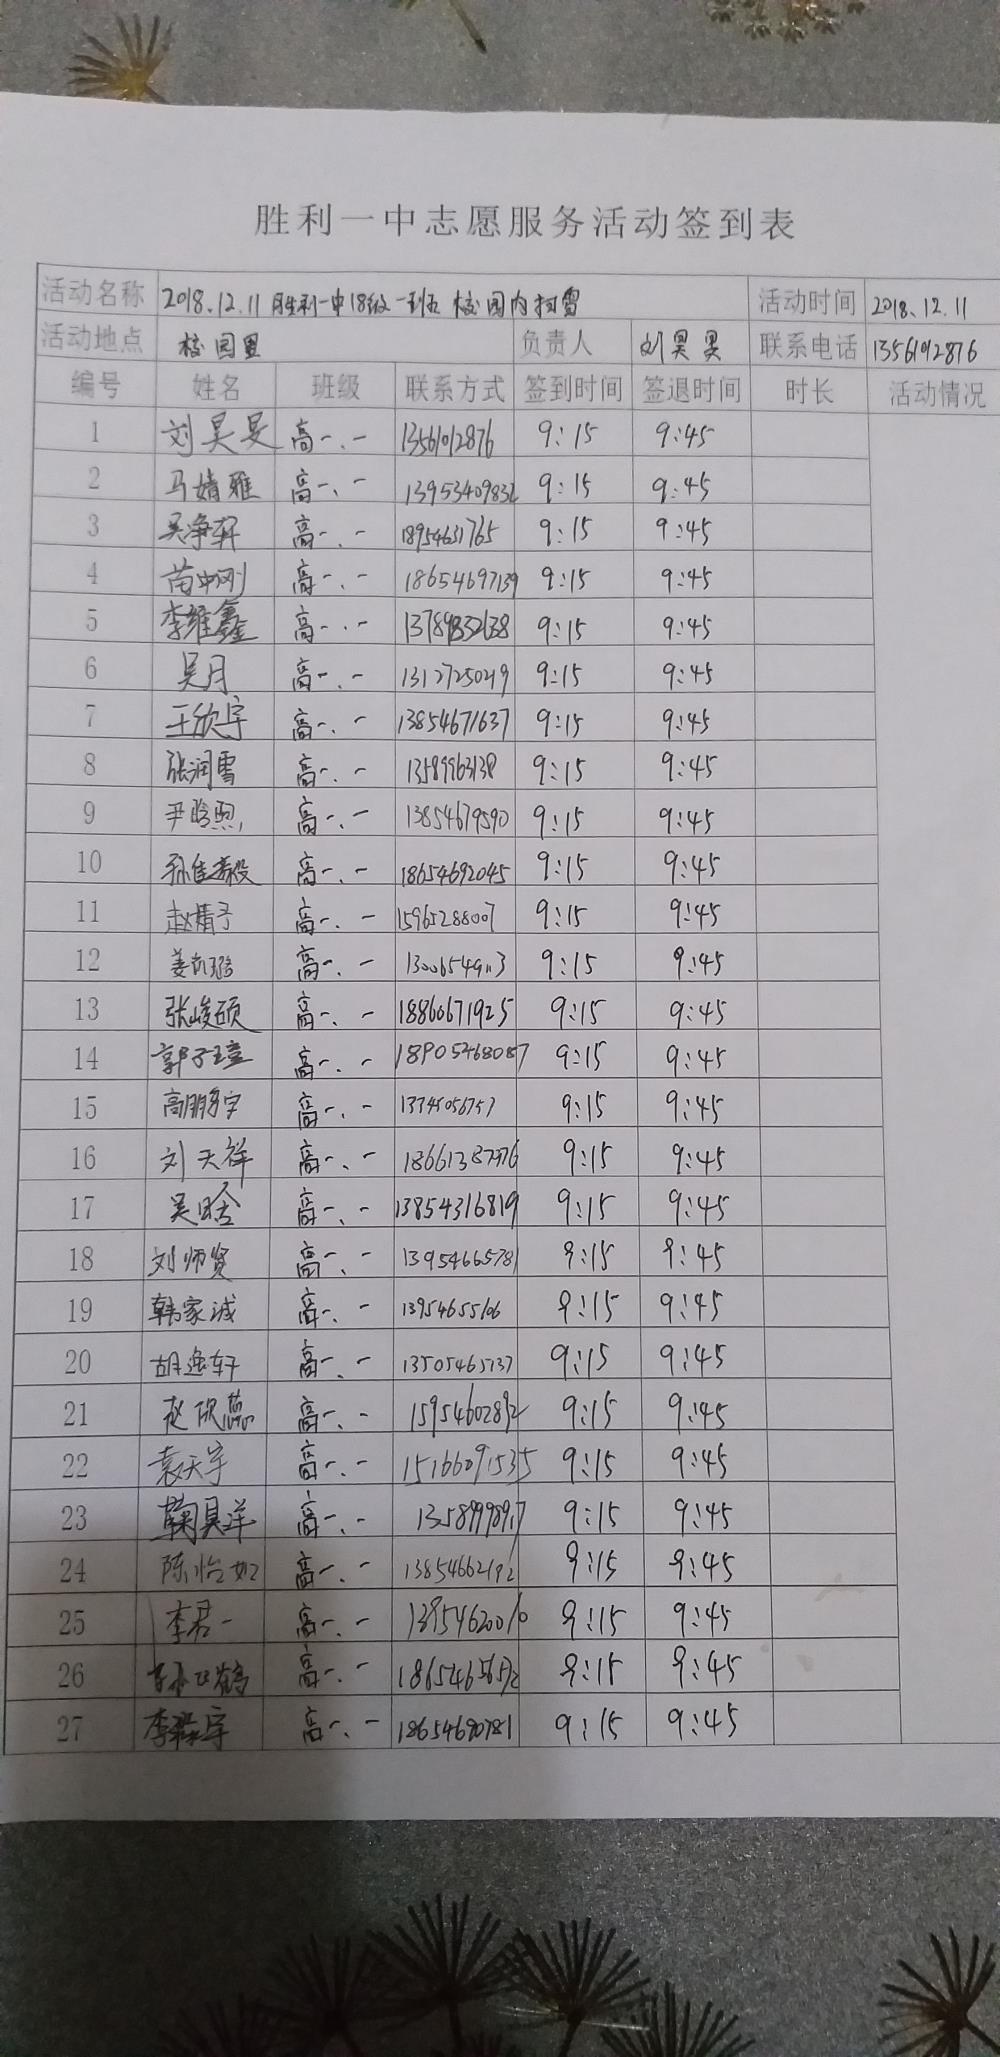 胜利一中志愿服务活动签到表
活动名称 2018.12.11 胜利一中18级一班 校园内扫雪 活动时间 2018.12.11
活动地点 校园里 负责人 刘昊旻 联系电话
编号 姓名 班级 联系方式 签到时间 签退时间 时长 活动情况
1 刘昊旻 高一.一 9:15 9:45
2 马婧雅 高一.一 13953409832 9:15 9:45
3 吴净轩 高一.一 18954651765 9:15 9:45
4 苗冲刚 高一.一 18654697139 9:15 9:45
5 李维鑫 高一.一 9:15 9:45
6 吴月 高一.一 13127250219 9:15 9:45
7 王欣宇 高一.一 13854671637 9:15 9:45
8 张润雪 高一.一 13589963138 9:15 9:45
9 尹晗煦 高一.一 13854679590 9:15 9:45
10 高一.一 18654692045 9:15 9:45
11 赵婧予 高一.一 15965288007 9:15 9:45
12 高一.一 9:15 9:45
13 张峻硕 高一.一 18860671925 9:15 9:45
14 郭子瑄 高一.一 18905468087 9:15 9:45
15 高一.一 9:15 9:45
16 刘天祥 高一.一 9:15 9:45
17 吴晗 高一.一 13854316819 9:15 9:45
18 刘师贤 高一.一 13954665781 9:15 9:45
19 韩家诚 高一.一 13954655106 9:15 9:45
20 胡逸轩 高一.一 13505465737 9:15 9:45
21 赵欣蕊 高一.一 15954602892 9:15 9:45
22 袁天宇 高一.一 15166091535 9:15 9:45
23 鞠昊洋 高一.一 9:15 9:45
24 陈怡如 高一.一 13854662192 9:15 9:45
25 李君一 高一.一 9:15 9:45
26 高一.一 9:15 9:45
27 高一.一 18654690781 9:15 9:45